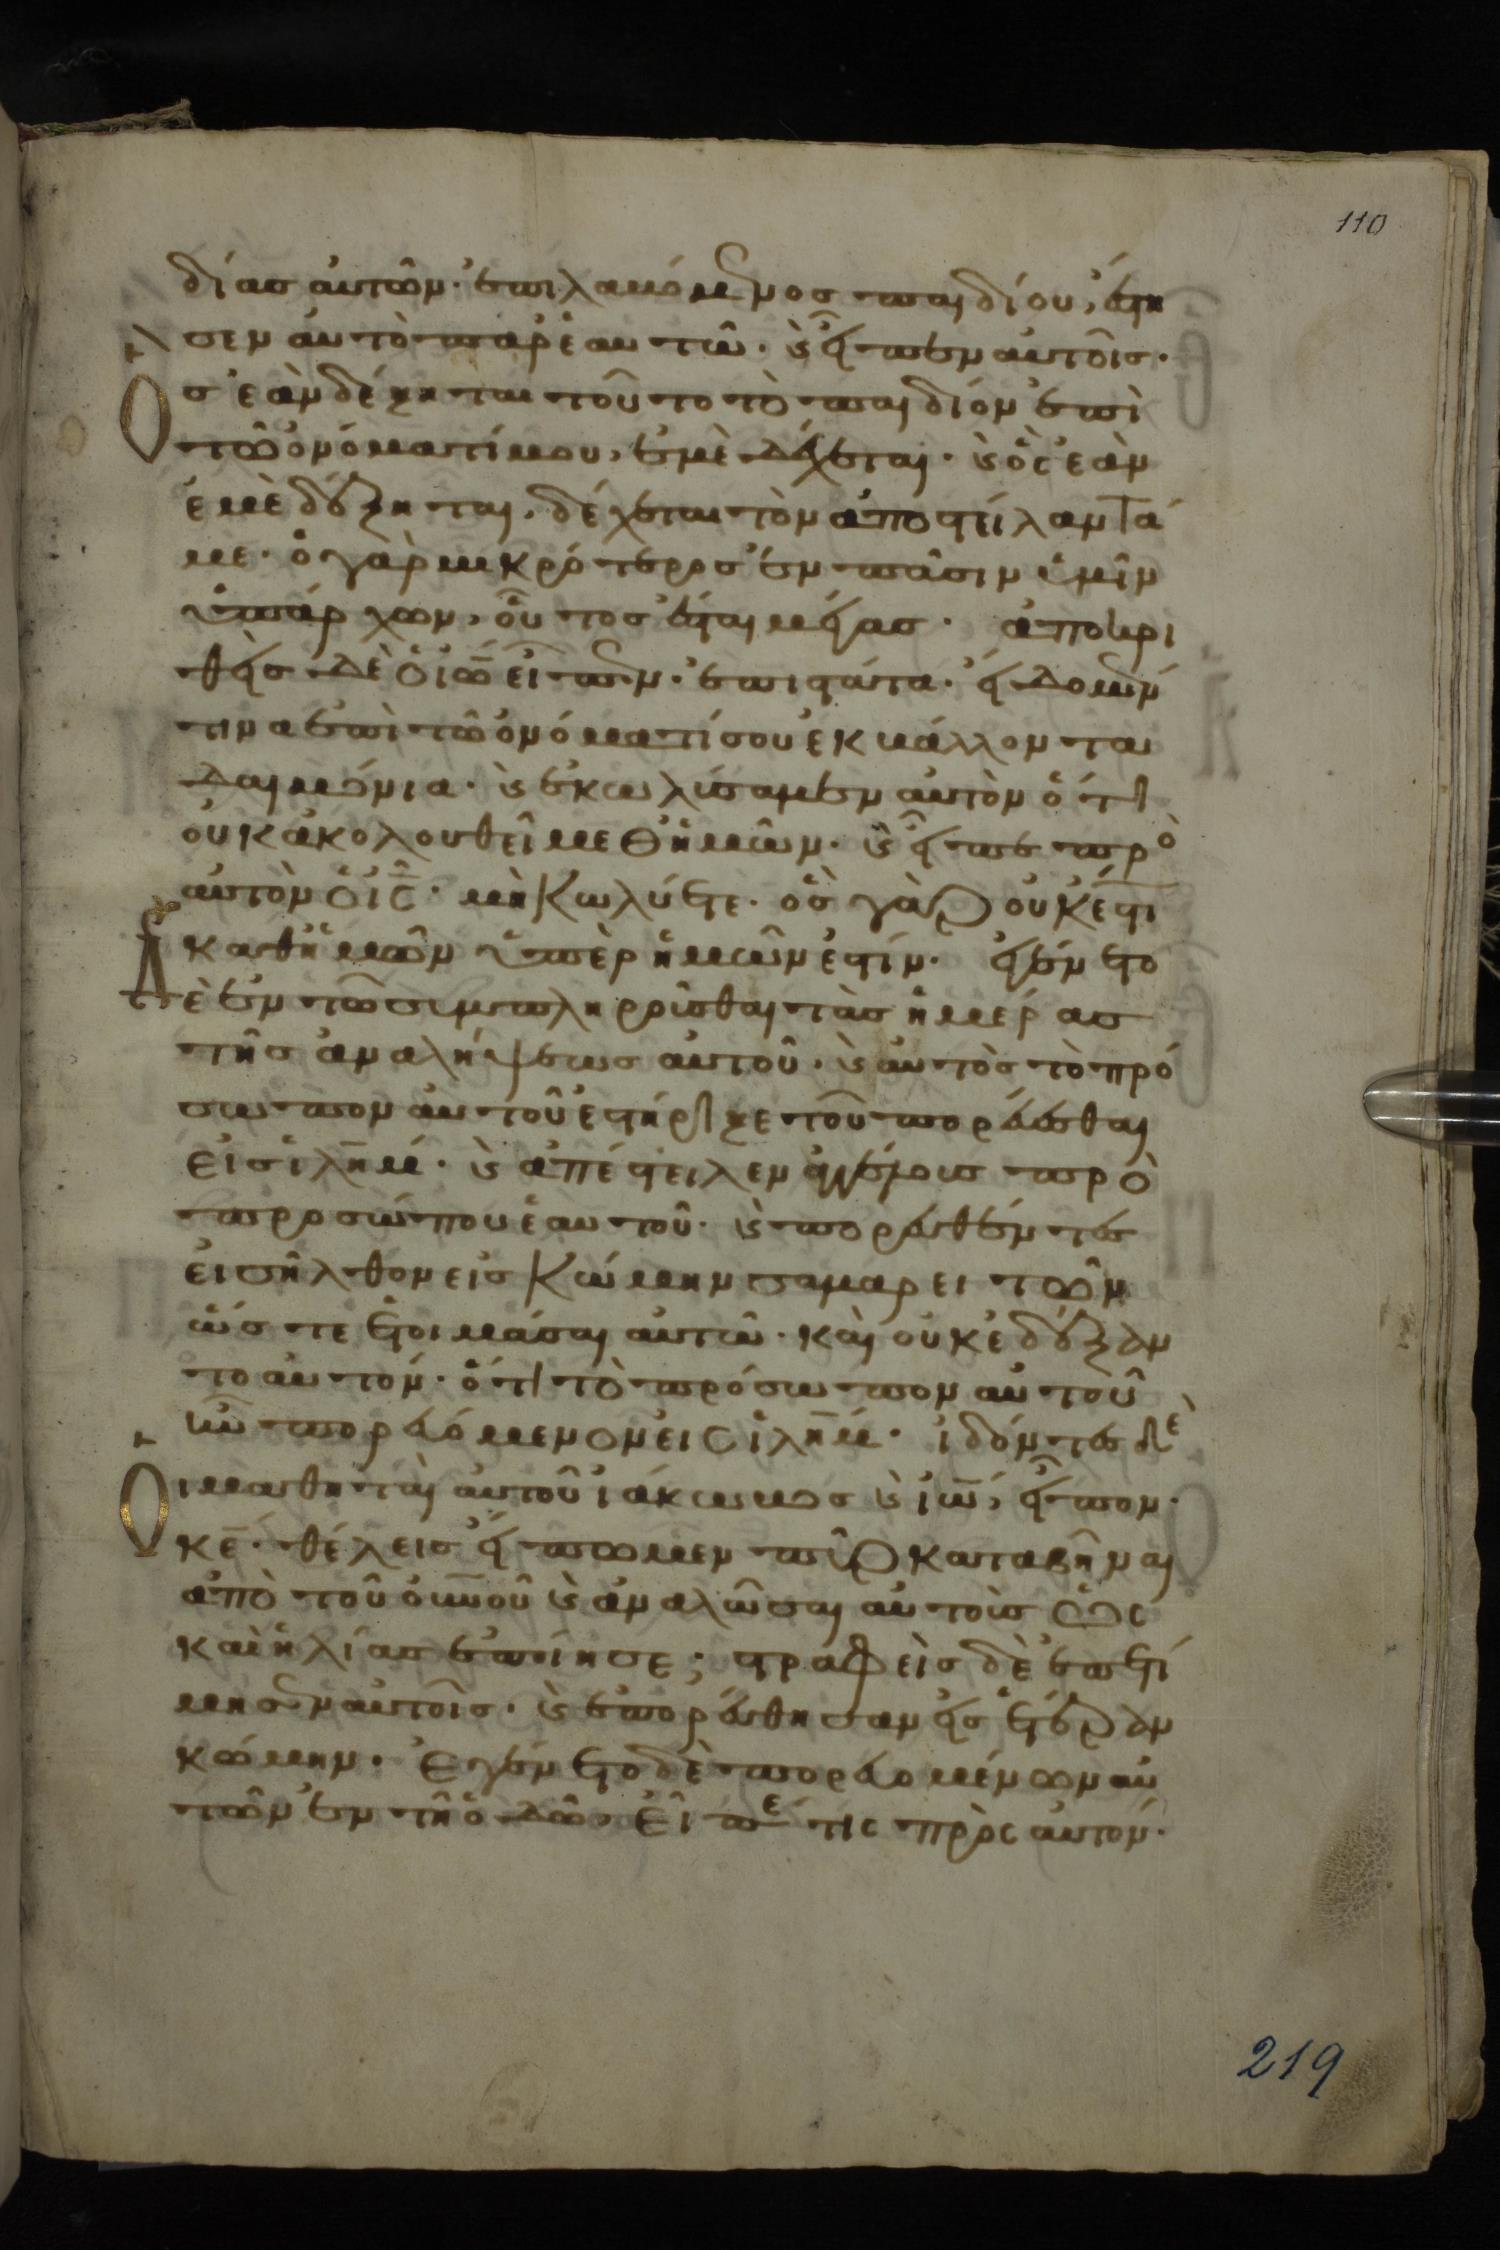 110
δίας αυτῶν· ἐπιλαβόμενος παιδίου, ἔστη
σεν αὐτὸ παρ ἑαυτῶ· καὶ εἶπεν αὐτοῖς·
Ὃς ἐὰν δέχηται τοῦτο τὸ παιδίον ἐπὶ
τῶ ὀνόματί μου, ἐμὲ δέχεται· καὶ ὃς ἐὰν
ἐμὲ δέξηται, δέχεται τὸν ἀποστείλαντά
με· ὁ γὰρ μικρότερος ἐν πᾶσιν ὑμῖν
ὑπάρχων, οὗτος ἔσται μέγας· ἀποκρι
θεὶς δὲ ὁ ιω εἶπεν· ἐπιστάτα· εἴδομέν
τινα ἐπὶ τῶ ὀνόματί σου ἐκβάλλοντα
δαιμόνια· καὶ ἐκωλύσαμεν αὐτὸν ὅτι
οὐκ ἀκολουθεῖ μεθ ἡμῶν· καὶ εἶπε πρὸ
αὐτὸν ὁ ις· μὴ κωλύετε· ὃς γὰρ οὐκ ἔστι
καθ ἡμῶν ὑπὲρ ἡμῶν ἐστίν· ἐγένετο
δὲ ἐν τῶ συμπληροῦσθαι τὰς ἡμέρας
τῆς ἀναλήψεως αὐτοῦ· καὶ αὐτὸς τὸ πρό
σωπον αὐτοῦ ἐστήριξε τοῦ πορεύεσθαι
εἰς ιλημ· καὶ ἀπέστειλεν ἀγγέλους πρὸ
προσώπου ἑαυτοῦ· καὶ πορευθέντες
εἰσῆλθον εἰς κώμην σαμαρειτῶν
ὥστε ἑτοιμάσαι αὐτῶ· καὶ οὐκ ἐδέξαν
το αὐτόν· ὅτι τὸ πρόσωπον αὐτοῦ
ἦν πορευόμενον εἰς ιλημ· ἰδόντες δὲ
Οι μαθηταὶ αὐτοῦ ἰάκωβος καὶ ιω, εἶπον·
κε· θέλεις εἴπωμεν πῦρ καταβῆναι
ἀπὸ τοῦ οὐνοῦ καὶ ἀναλῶσαι αὐτοὺς ὡς
καὶ ἡλίας ἐποίησε; στραφεὶς δὲ ἐπετί
μησεν αὐτοῖς· καὶ ἐπορεύθησαν εἰς ἑτέραν
κώμην· Ἐγένετο δὲ πορευομένων αὐ
τῶν ἐν τῆ ὁδῶ, εἶπέ τις πρὸς αὐτόν·
219